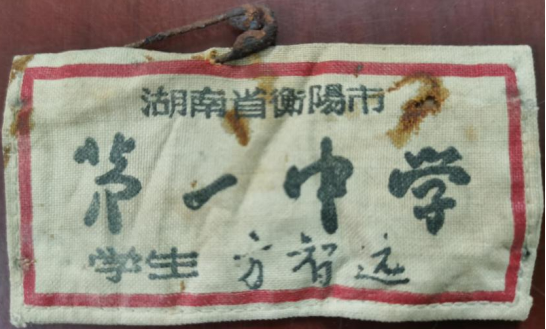 湖南省衡陽市
第一中学
学生 方智远